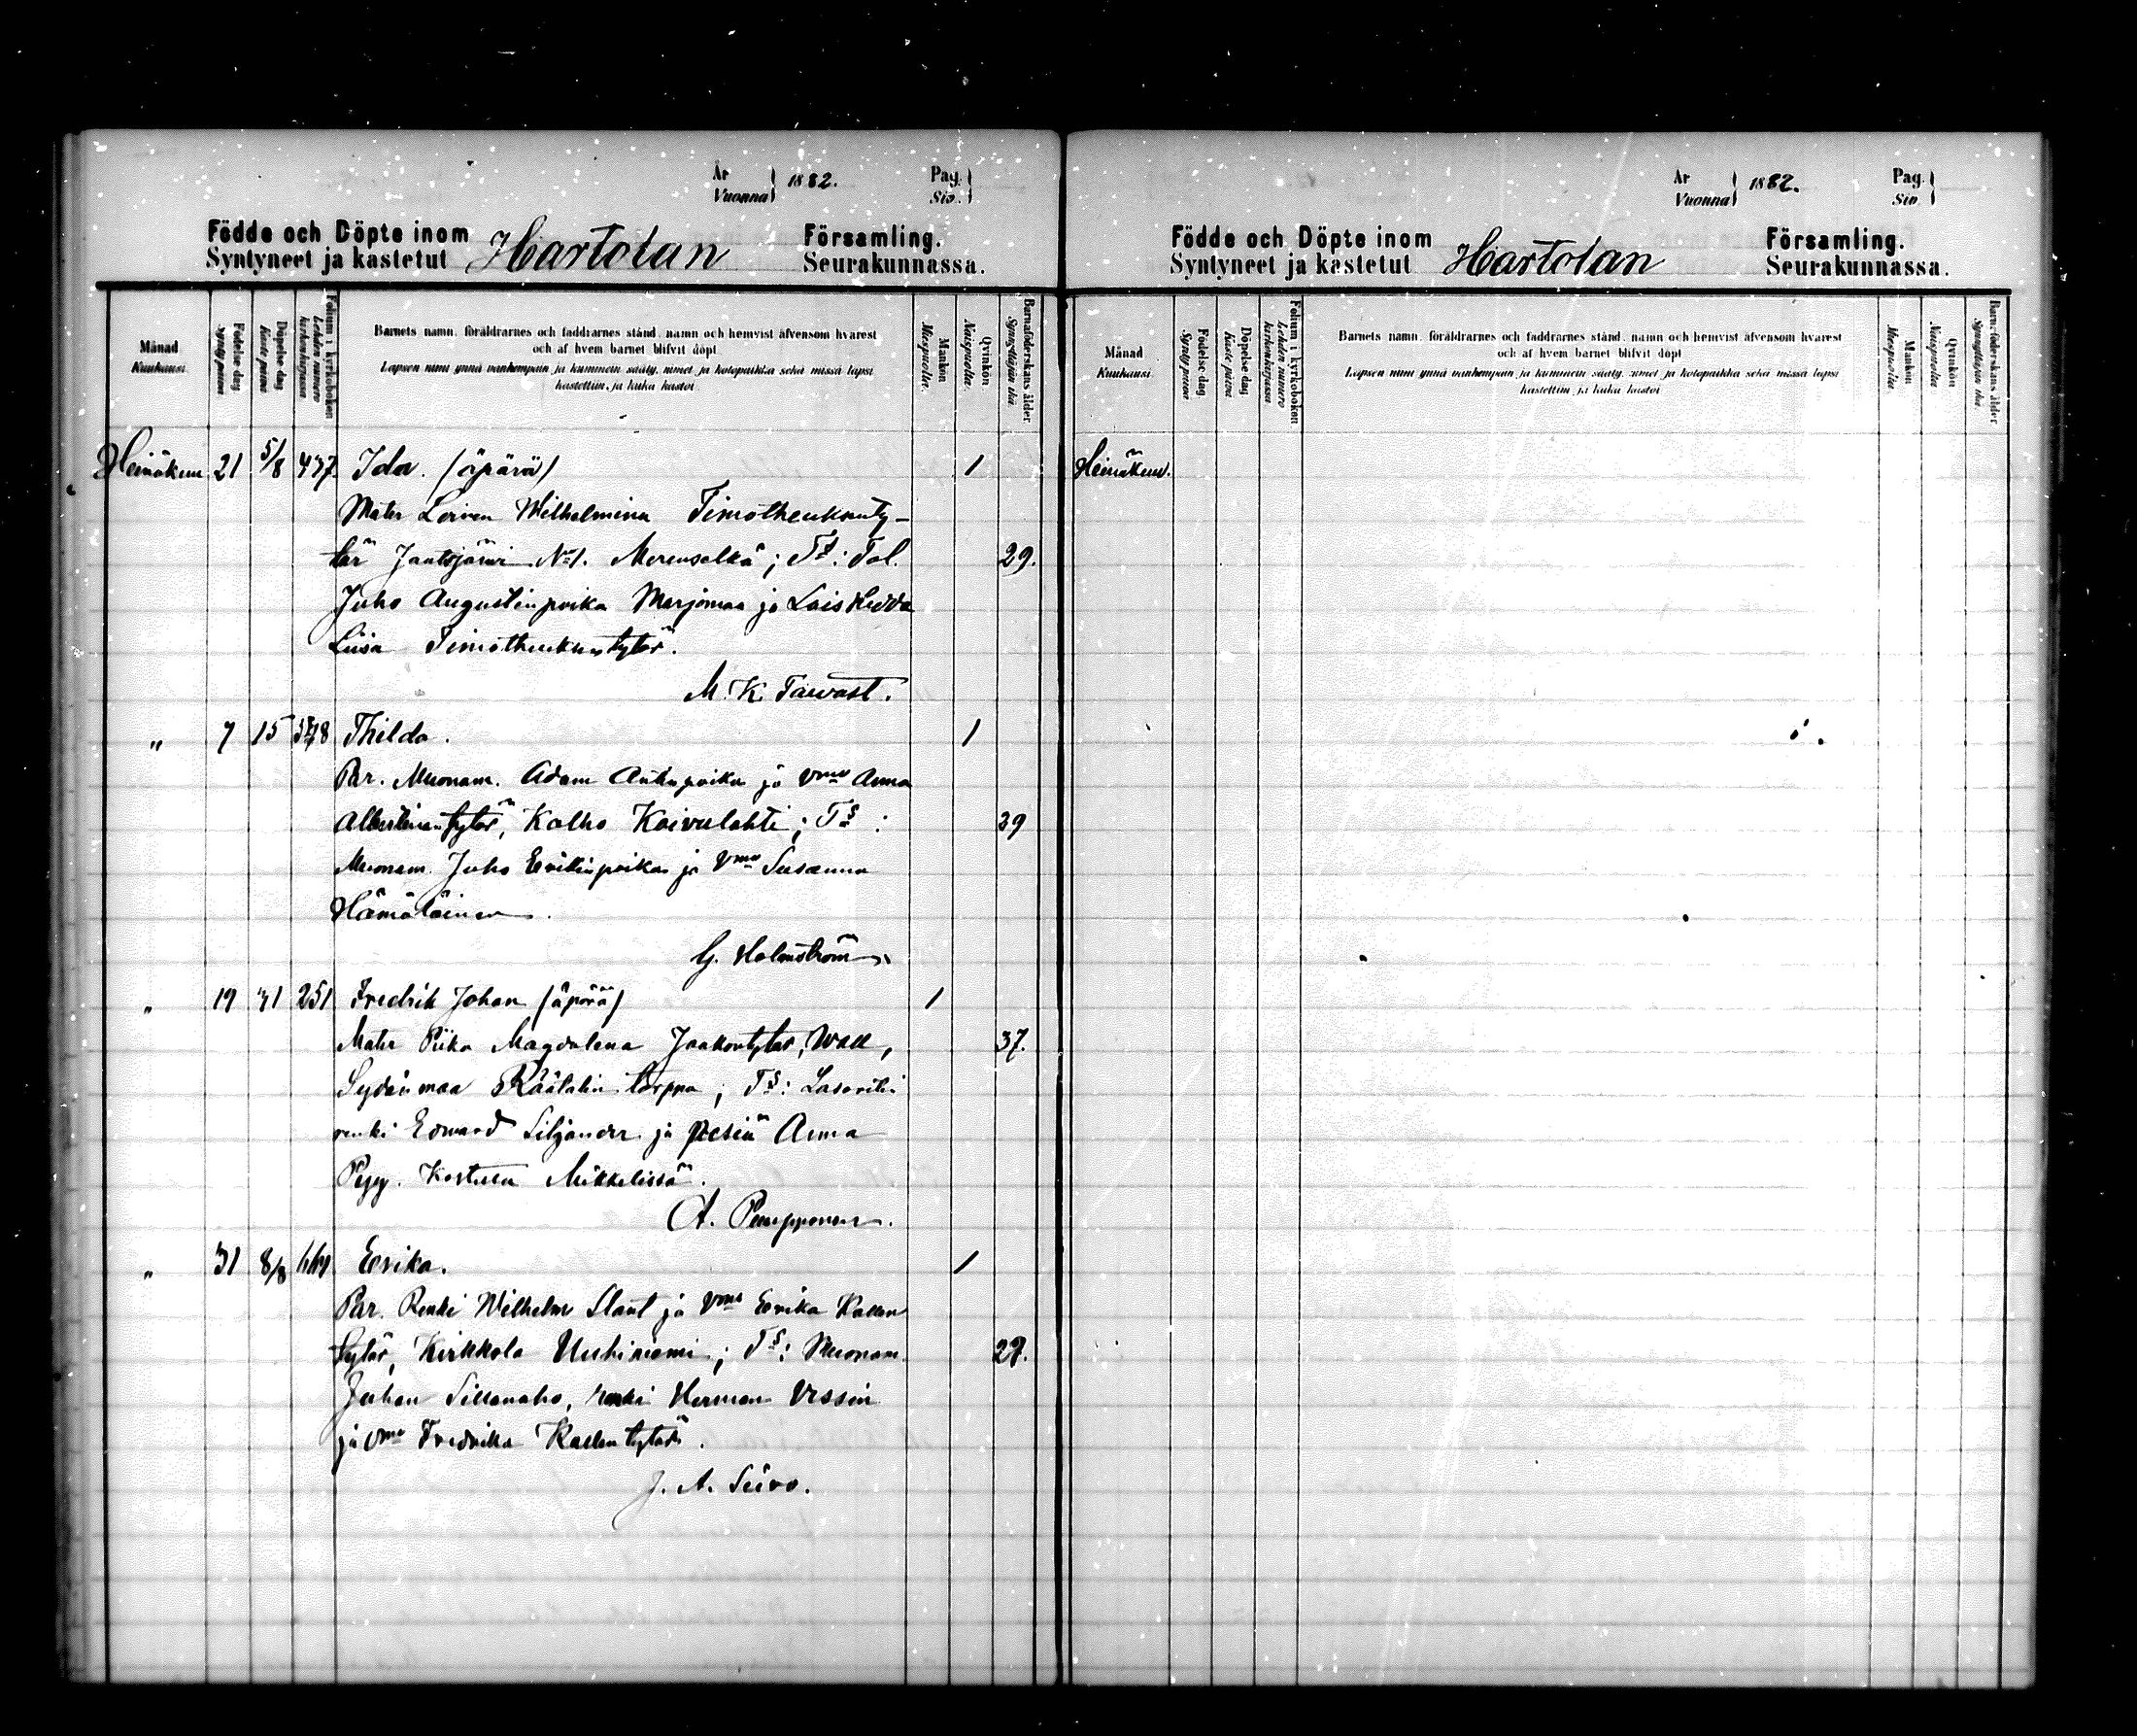 År
Vuonna 1882. Pag.
Siv.
Födde och Döpte inom Hartolan Församling.
Syntyneet ja kastetut Seurakunnassa.
Månad
Kuukausi.
Födelse dag
Synty päivä
Döpelse dag
Kaste päivä
Folium i kyrkoboken
Lehden numero kirkonkirjassa
Barnets namn, föräldrarnes och faddrarnes stånd, namn och hemvist äfvensom hvarest
och af hvem barnet blifvit döpt
Lapsen nimi ynnä vanhempain ja kummein sääty, nimet ja kotopaikka sekä missä lapsi
kastettiin, ja kuka kastoi
Mankön
Miespuolia.
Qvinkön
Naispuolia.
Barnaföderskans ålder
Synnyttäjän ikä
Heinäkuu 21 5/8 437. Ida. (äpärä) 1
Mater Loinen Wilhelmina Timotheuksenty-
tär Jautsjärvi No 1. Merenselkä; Tt: Tal. 29.
Juho Augustinpoika Marjomaa ja Lois Hedda
Liisa Timotheuksentytär.
M. K. Tawast.
" 7 15 Thilda. 1
Par. Muonam. Adam Antinpoika ja Vmo Anna
Albertinantytär, Kalho Koivulahti; Ts: 39
Muonam. Juho Eerikinpoika ja Vmo Susanna
Hämäläinen.
G. Holmström.
" 19 31 251 Fredrik Johan (äpärä) 1
Mater Piika Magdalena Jaakontytar, Wall, 37.
Sydänmaa Räätälin torppa; Ts:
renki Edward Siljander ja Anna
Kastettu Mikkelissä.
A. Pemppnen.
" 31 8/8 Eerika. 1
Par. Renki Wilhelm Slant ja Vmo Eerika Kallen
tytär, Kirkkola Uuhiniemi; Ts: Muonam. 29.
Juhan Sillanaho, renki Herman Vessin
ja Vmo Fredrika Kallentytär.
J. A. Siivo.
År
Vuonna 1882. Pag.
Siv
Födde och Döpte inom Hartolan Församling.
Syntyneet ja kastetut Seurakunnassa.
Månad
Kuukausi.
Födelse dag
Synty päivä
Döpelse dag
Kaste päivä
Folium i kyrkoboken
Lehden numero kirkonkirjassa
Barnets namn, föräldrarnes och faddrarnes stånd, namn och hemvist äfvensom hvarest
och af hvem barnet blifvit döpt
Lapsen nimi ynnä vanhempain ja kummein sääty, nimet ja kotopaikka sekä missä lapsi
kastettiin, ja kuka kastoi
Mankön
Miespuolia.
Qvinkön
Naispuolia.
Barnaföderskans ålder
Synnyttäjän ikä
Heinäkuu.